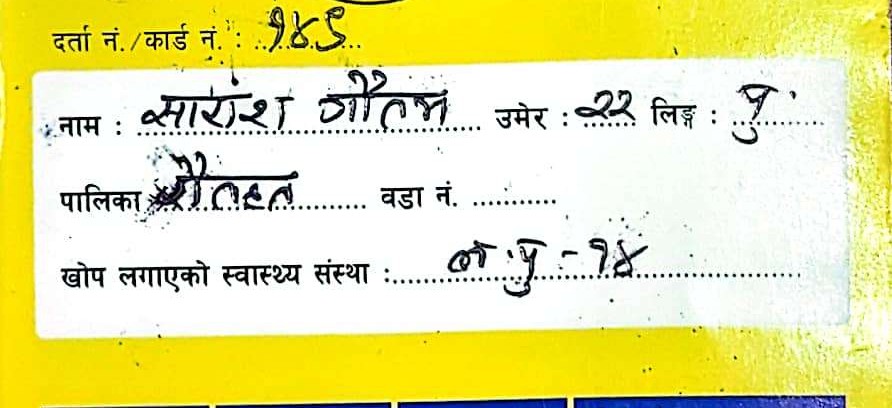 दर्ता नं./कार्ड नं. : १४९
नाम : सारांश गौतम उमेर : २२ लिङ्ग : पु.
पालिका रौतहत वडा नं. ............
खोप लगाएको स्वास्थ्य संस्था : ल.पु - १४